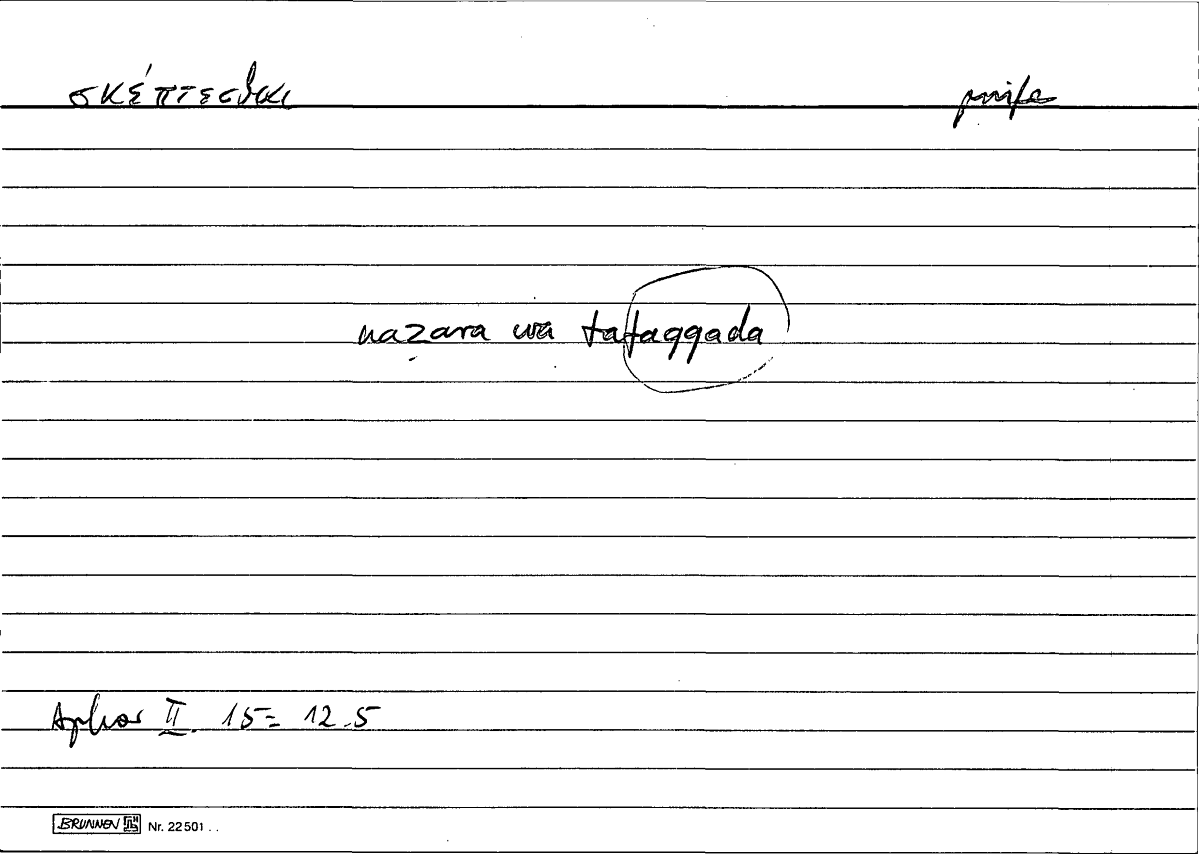 σκέπτεσθαι
naẓara wa tafaqqada
Aphor II. 15 = 12.5
BRUNNEN Nr. 22 501 . .